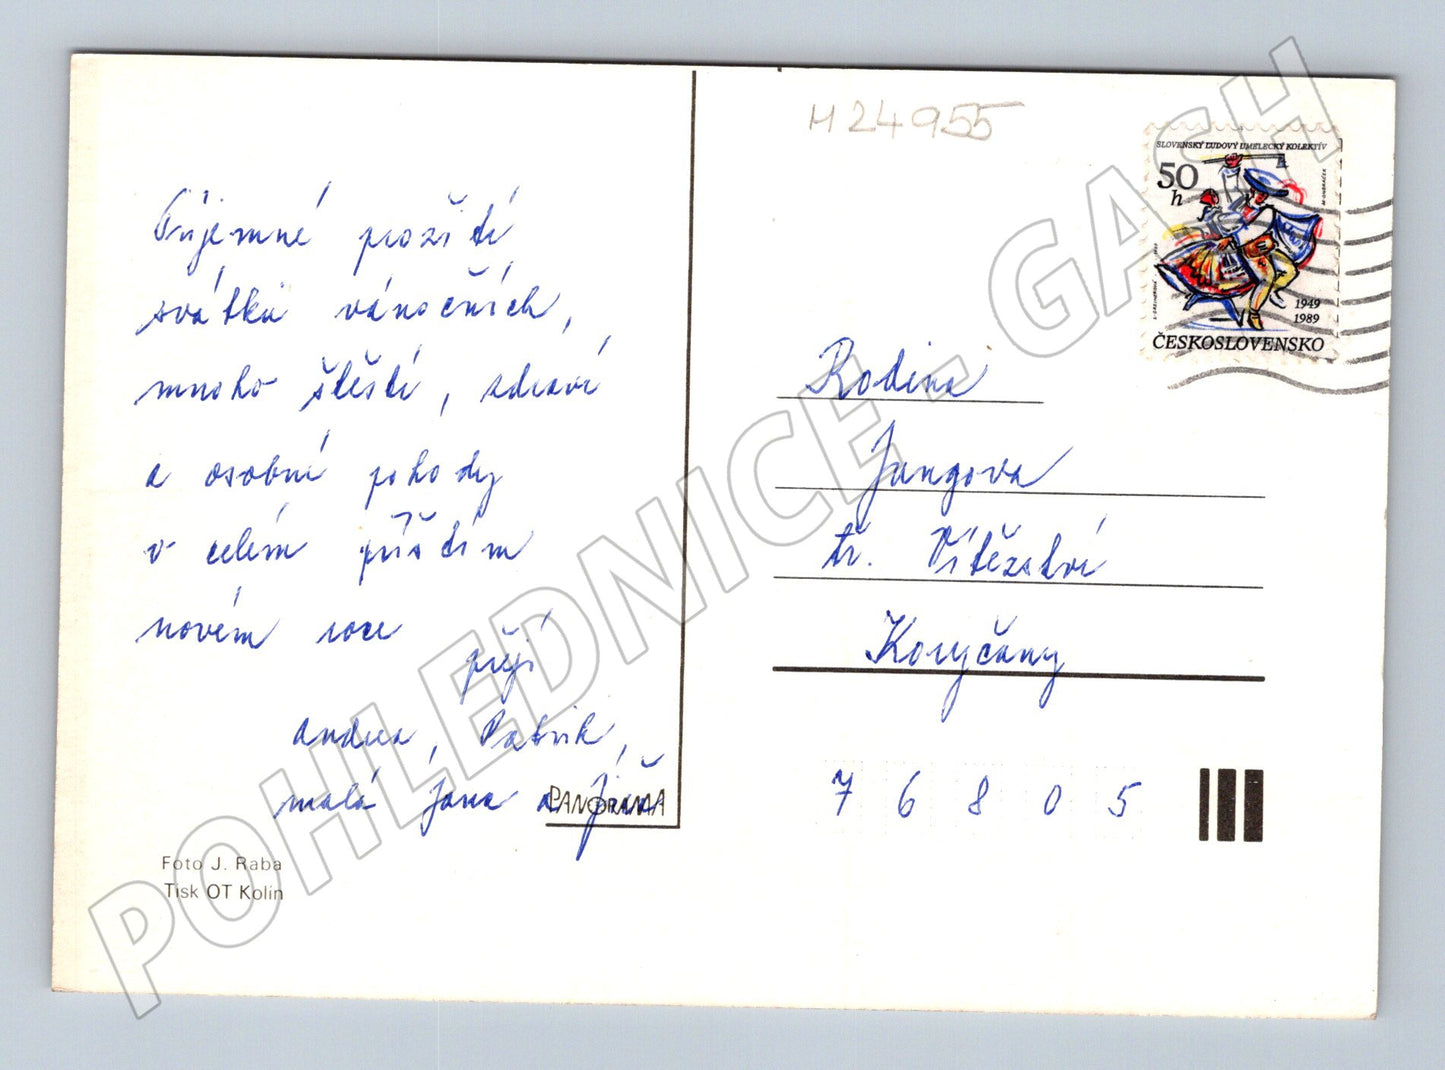 Příjemné prožití
svátků vánočních,
mnoho štěstí, zdraví
a osobní pohody
v celém příštím
novém roce
přejí
Andrea, Patrik,
malá Jana a Jiří
PANORAMA
Foto J. Raba
Tisk OT Kolín
H 24955
SLOVENSKÝ ĽUDOVÝ UMELECKÝ KOLEKTÍV
50
h
1949
1989
ČESKOSLOVENSKO
Rodina
Jangova
tř. Vítězství
Koryčany
7 6 8 0 5
POHLEDNICE - GASH